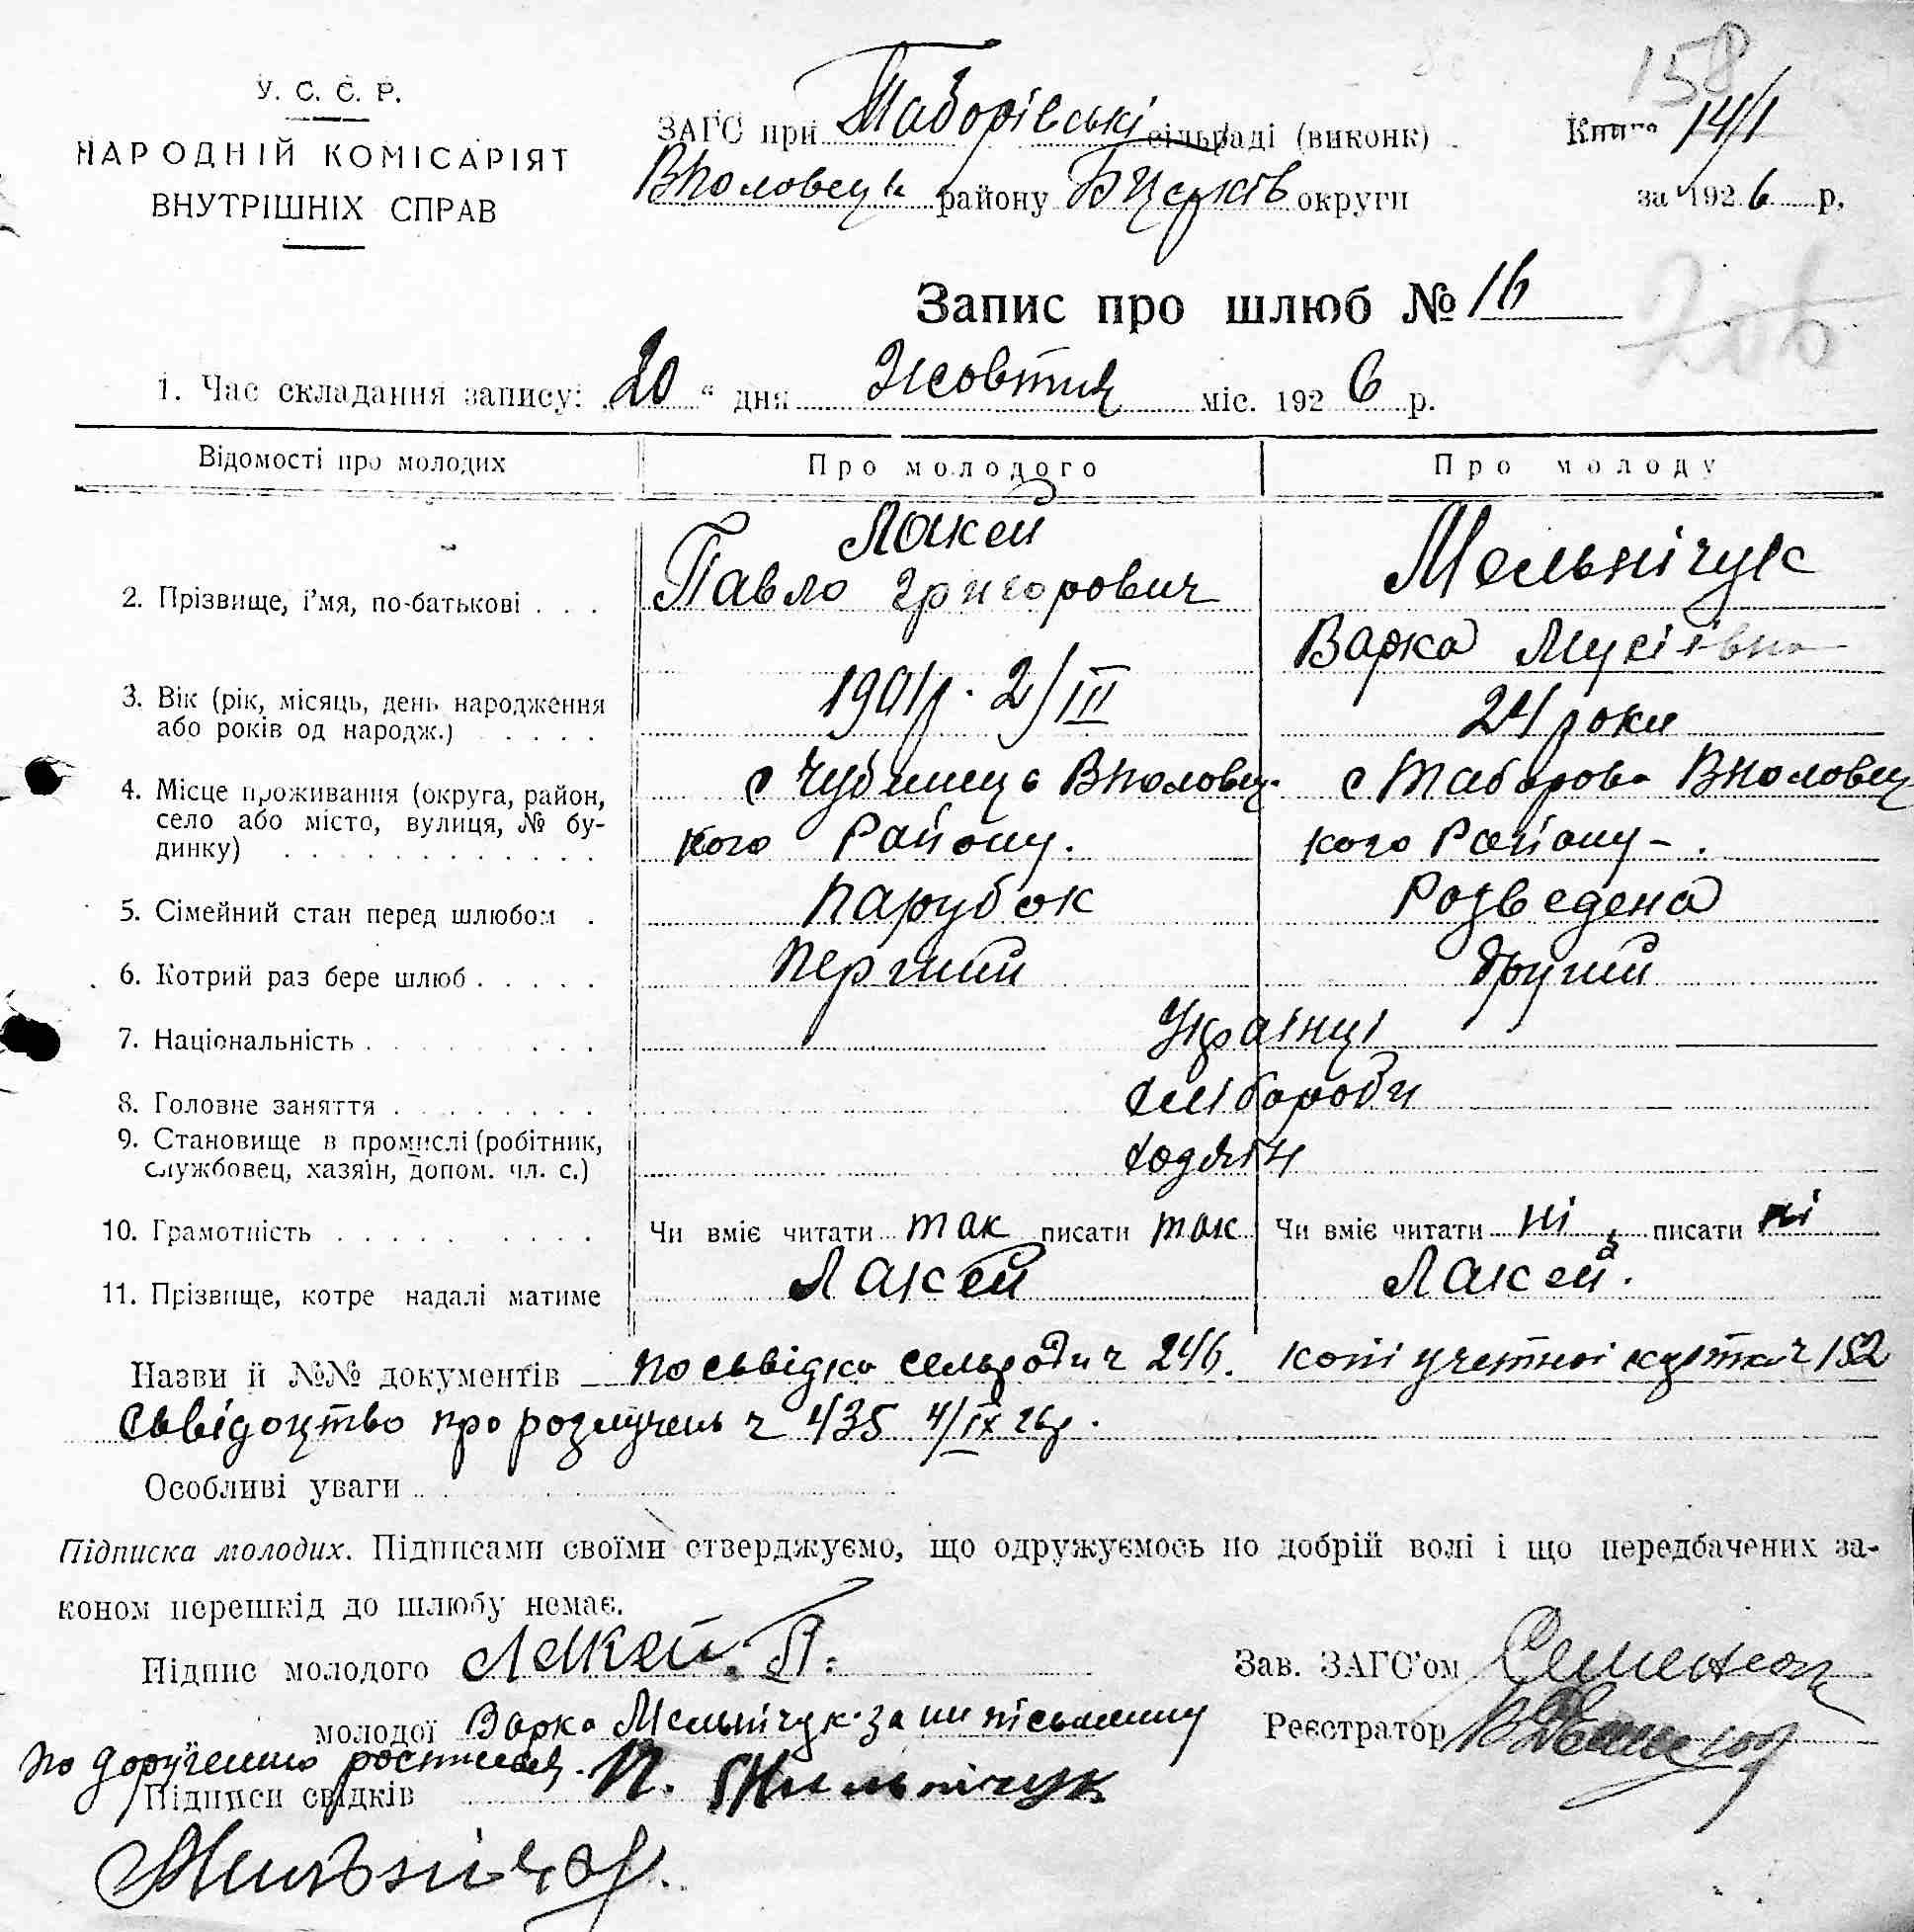 158
У. С. С. Р.
НАРОДНІЙ КОМІСАРІЯТ
ВНУТРІШНІХ СПРАВ
ЗАГС при Таборівські сільраді (виконк)
Книга 14/1
Вполовецьк району БЦерків округи
за 1926 р.
206
Запис про шлюб № 16
1. Час складання запису: 20 " дня Жовтня міс. 1926 р.
Відомості про молодих Про молодого Про молоду
2. Прізвище, і'мя, по-батькові . . . Лакей Павло Григорович Мельнічук Варка Мусіівна
3. Вік (рік, місяць, день народження
або років од народж.) 1901р. 2/III 24 роки
4. Місце проживання (округа, район, с Чубинец в Вполовец. с Таборова Вполовец
село або місто, вулиця, № бу-
динку) кого Району. кого Району - .
5. Сімейний стан перед шлюбом . парубок Розведена
6. Котрий раз бере шлюб . . . . . перший другий
7. Національність . Українці
8. Головне заняття . хлібороби
9. Становище в промислі (робітник,
службовец, хазяін, допом. чл. с.)
10. Грамотність Чи вміє читати так писати так Чи вміє читати ні писати ні
11. Прізвище, котре надалі матиме Лакей Лакей.
Назви й №№ документів посьвідка сельради ч 246. копі учетноі картки ч 152
Сьвідоцтво про розлучень ч 435 4/IX 26р.
Особливі уваги
Підписка молодих. Підписами своїми стверджуємо, що одружуємось по добрій волі і що передбачених за-
коном перешкід до шлюбу немає.
Підпис молодого Лакей. П.
Зав. ЗАГС'ом Семенюк
молодої Варка Мельнічук за ни пісьменну
Реєстратор
по дорученню
Підписи свідків П. Мильнічук